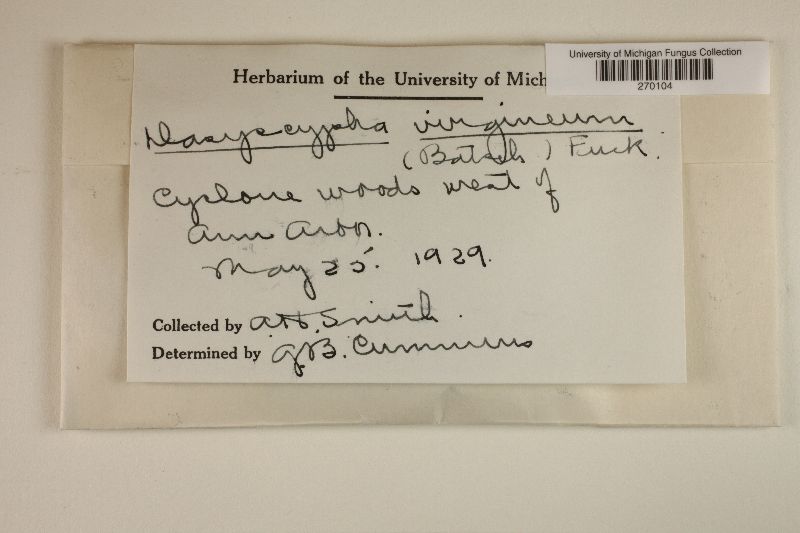 University of Michigan Fungus Collection
270104
Herbarium of the University of Mich
Dasyscypha virgineum
(Batsch) Fuck.
Cyclone woods west of
Ann Arbor.
May 25. 1929.
Collected by A.H. Smith.
Determined by G.B. Cummins